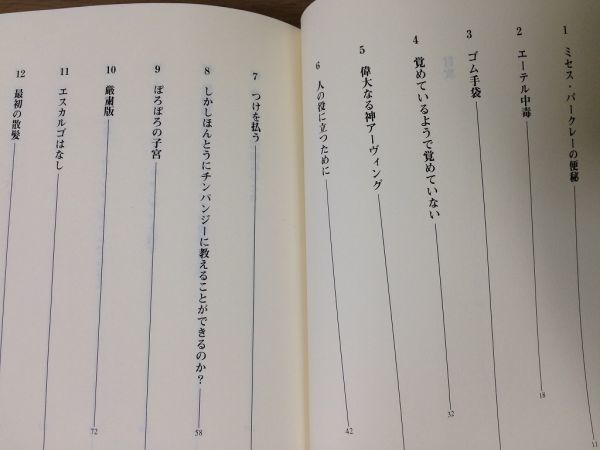 1 ミセス・パークレーの便秘 11
2 エーテル中毒 18
3 ゴム手袋
4 覚めているようで覚めていない 32
5 偉大なる神アーヴィング
6 人の役に立つために 42
7 つけを払う
8 しかしほんとうにチンパンジーに教えることができるのか? 58
9 ぼろぼろの子宮
10 厳粛版 72
11 エスカルゴはなし
12 最初の散髪